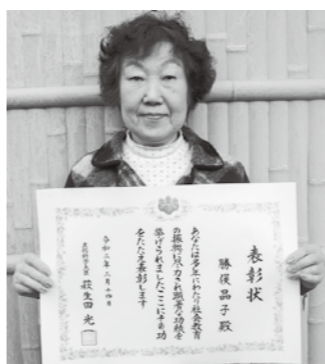 表彰状
勝俣品子殿
あなたは多年にわたり社会教育
の振興に尽力され顕著な功績を
挙げられましたここにその功
をたたえ表彰します
令和二年二月十四日
文部科学大臣 萩生田光一